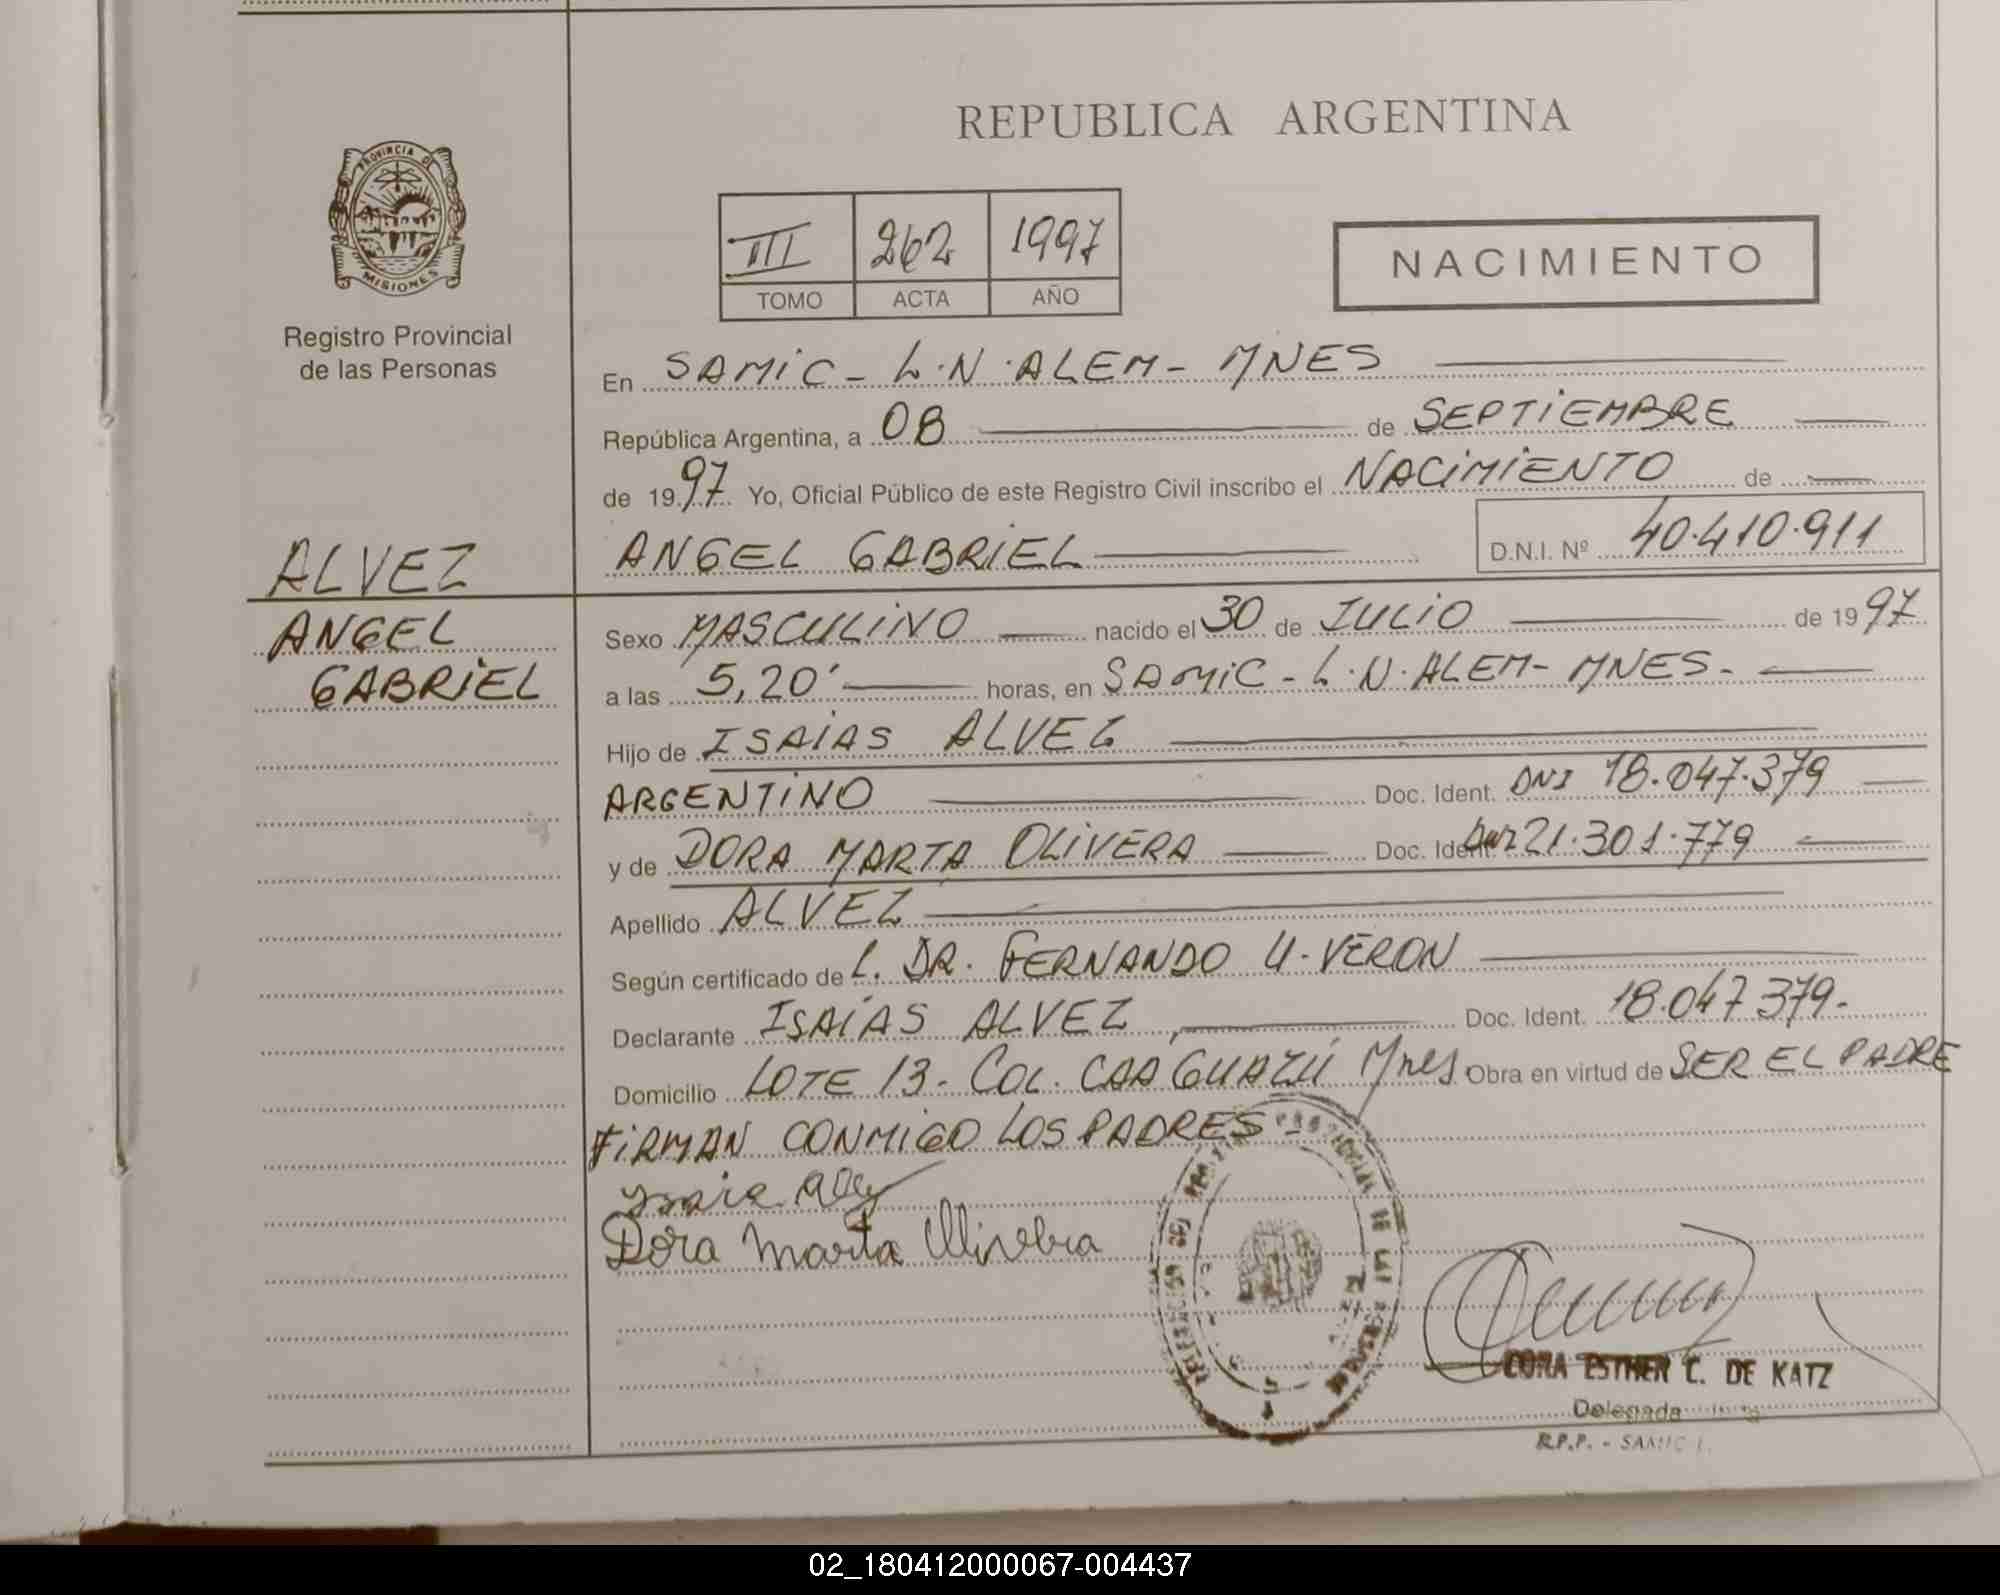 REPUBLICA ARGENTINA
PROVINCIA DE
MISIONES
Registro Provincial
de las Personas
III 262 1997
TOMO ACTA AÑO
NACIMIENTO
En SAMIC - L.N. ALEM - MNES
República Argentina, a 08 de SEPTIEMBRE
de 1997 Yo, Oficial Público de este Registro Civil inscribo el NACIMIENTO de
ANGEL GABRIEL D.N.I. Nº 40.410.911
ALVEZ
ANGEL
GABRIEL
Sexo MASCULINO nacido el 30 de JULIO de 1997
a las 5,20' horas, en SAMIC - L.N. ALEM - MNES -
Hijo de ISAIAS ALVEZ
ARGENTINO Doc. Ident. DNI 18.047.379
y de DORA MARTA OLIVERA Doc. Ident. DNI 21.301.779
Apellido ALVEZ
Según certificado de L. DR. FERNANDO U. VERON
Declarante ISAIAS ALVEZ Doc. Ident. 18.047 379-
Domicilio LOTE 13 - COL. CAAGUAZÚ Mnes. Obra en virtud de SER EL PADRE
FIRMAN CONMIGO LOS PADRES -
Dora Marta
DORA ESTHER C. DE KATZ
Delegada
R.P.P. - SAMIC
02_180412000067-004437